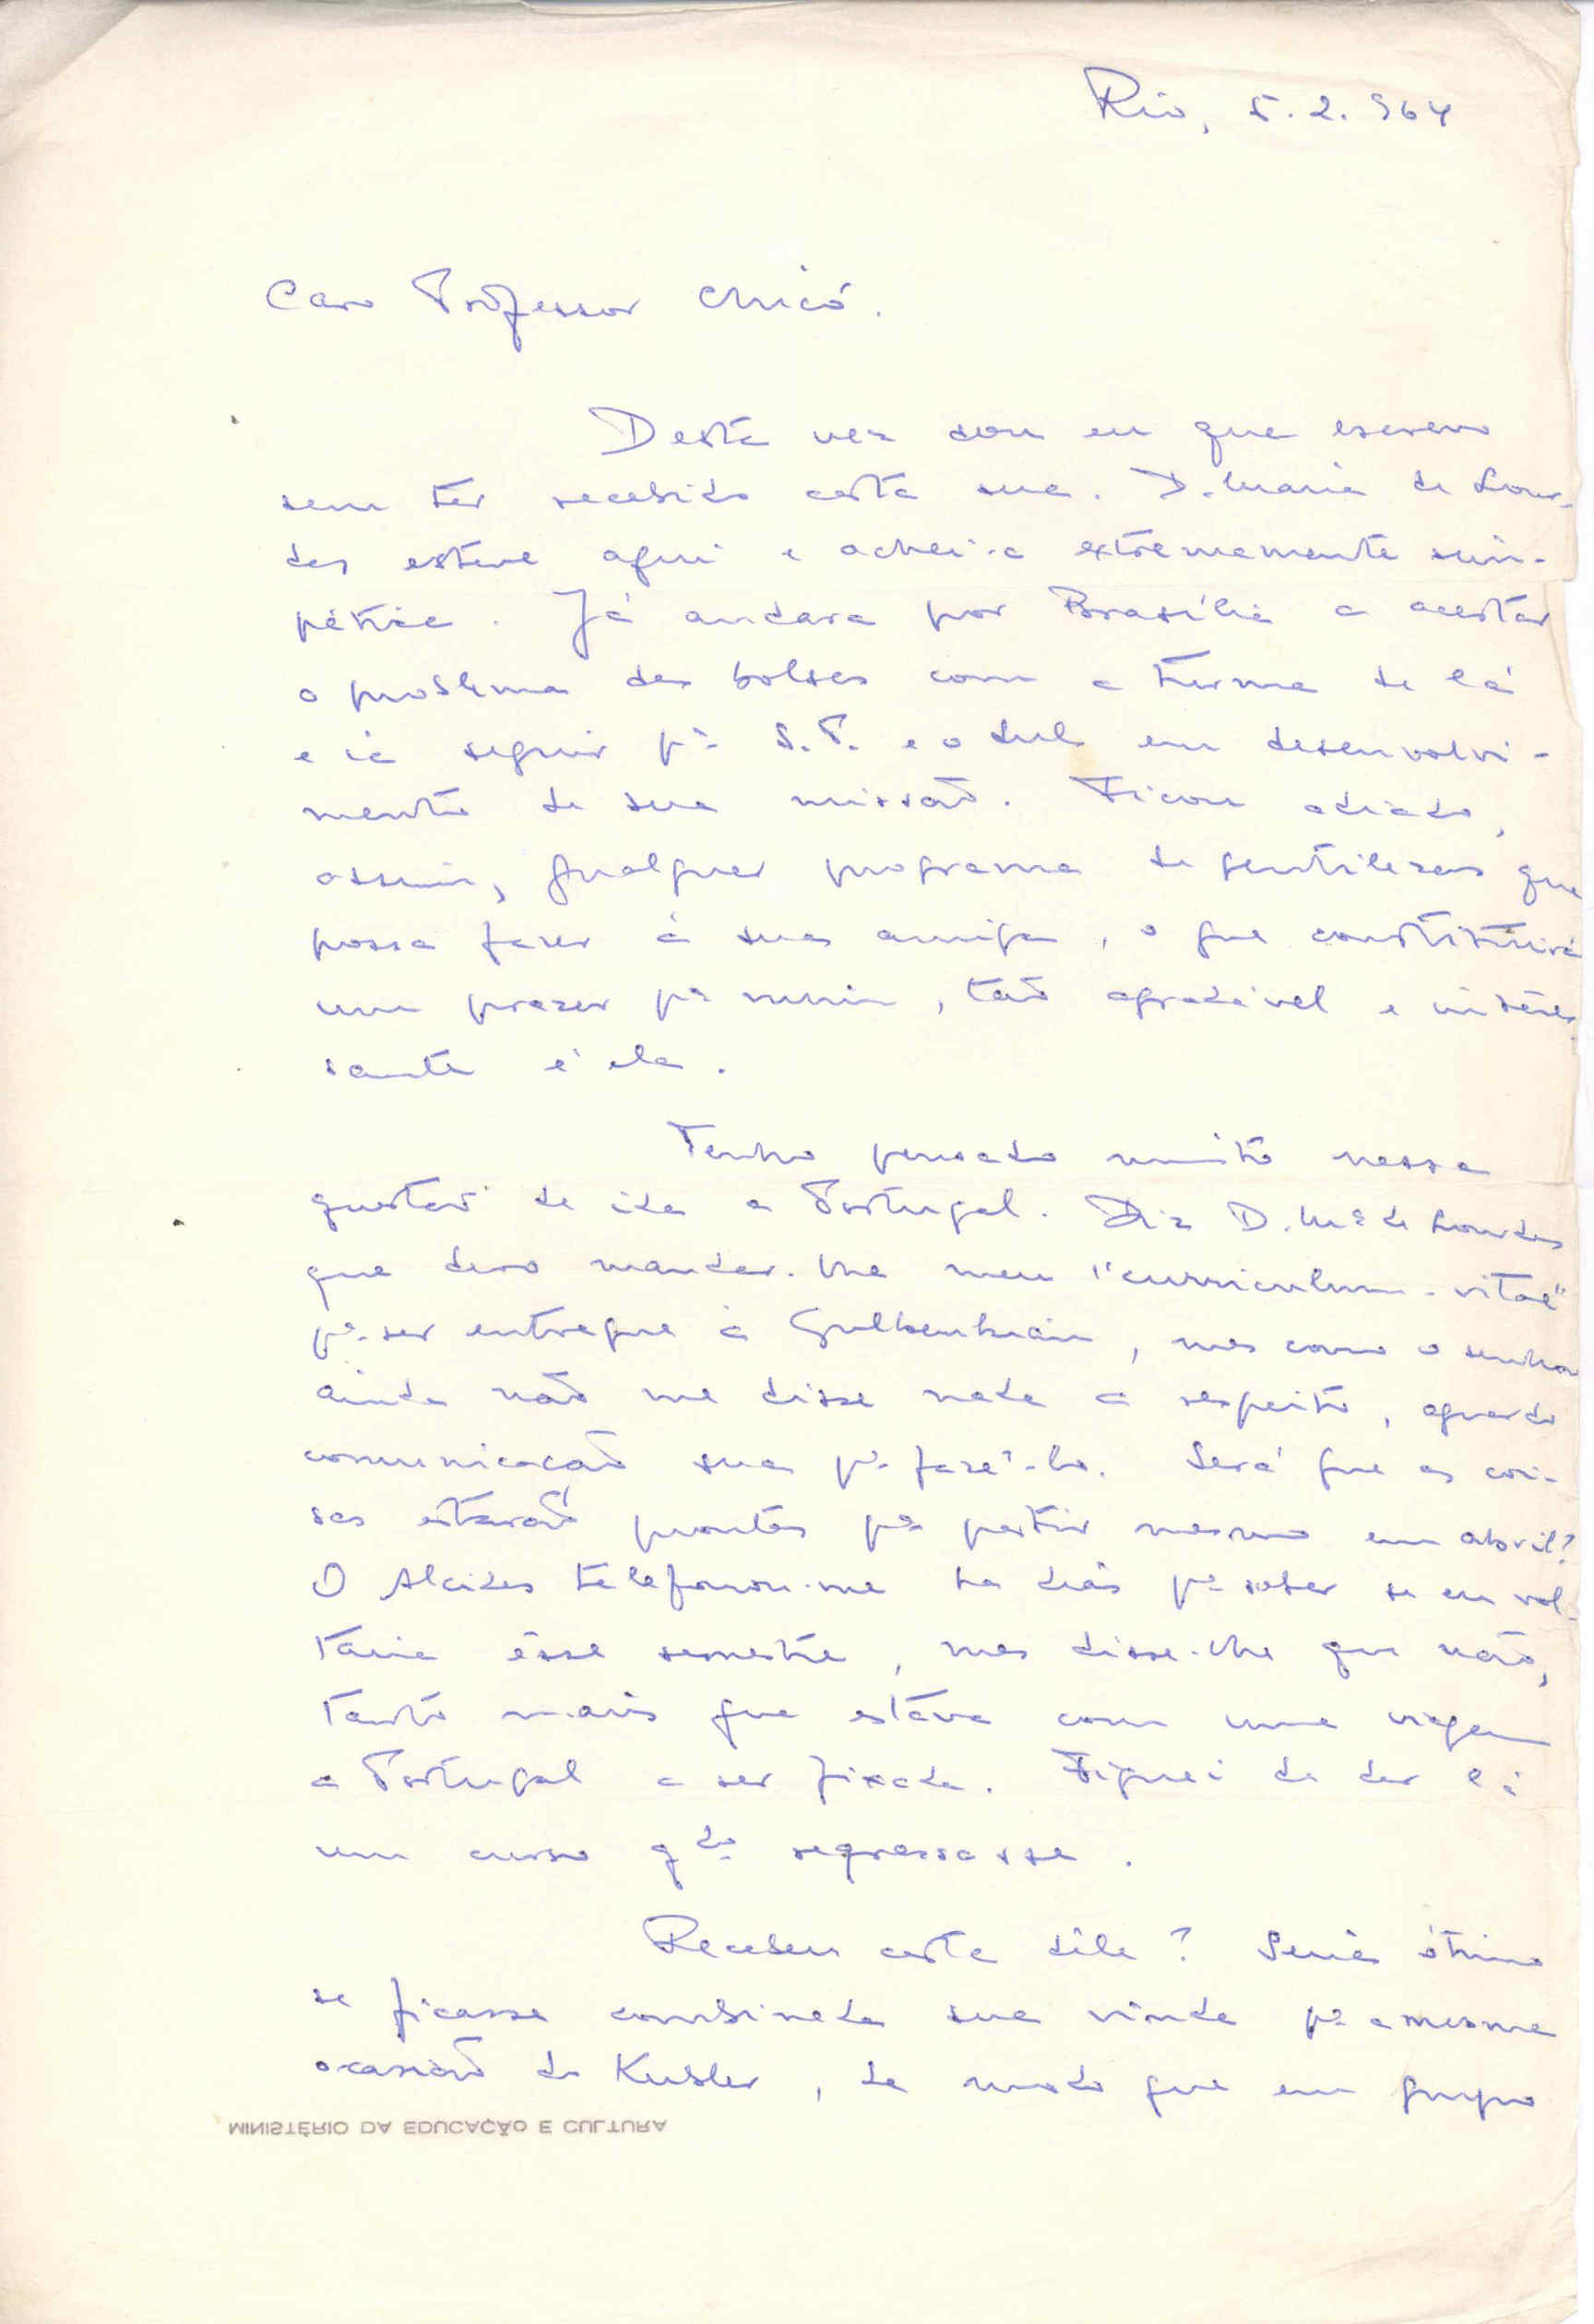 Rio, 5.2.964
Caro Professor Chicó.
Desta vez sou eu que escrevo
sem ter recebido carta sua. D. Maria de Lour-
des esteve aqui e achei-a extremamente sim-
pática. Já andara por Brasília a acertar
o problema das bolsas com a turma de lá
e ia seguir pª S.P. e o sul em desenvolvi-
mento de sua missão. Ficou adiado,
assim, qualquer programa de gentilezas que
possa fazer à sua amiga, o que constituirá
um prazer pª mim, tão agradável e interes-
sante é ela.
Tenho pensado muito nessa
questão de ida a Portugal. Diz D. Mª de Lourdes
que devo mandar-lhe meu "curriculum-vitae"
pª ser entregue à Gulbenkian, mas como o senhor
ainda não me disse nada a respeito, aguardo
comunicação sua pª fazê-lo. Será que as coi-
sas estarão prontas pª partir mesmo em abril?
O Alcides telefonou-me ha dias pª saber se eu vol-
taria êsse semestre, mas disse-lhe que não,
tanto mais que estava com uma viagem
a Portugal a ser fixada. Fiquei de dar lá
um curso qdo regressasse.
Recebeu carta dêle? Seria ótimo
se ficasse combinada sua vinda pª a mesma
ocasião do Kubler, de modo que em grupo
MINISTÉRIO DA EDUCAÇÃO E CULTURA